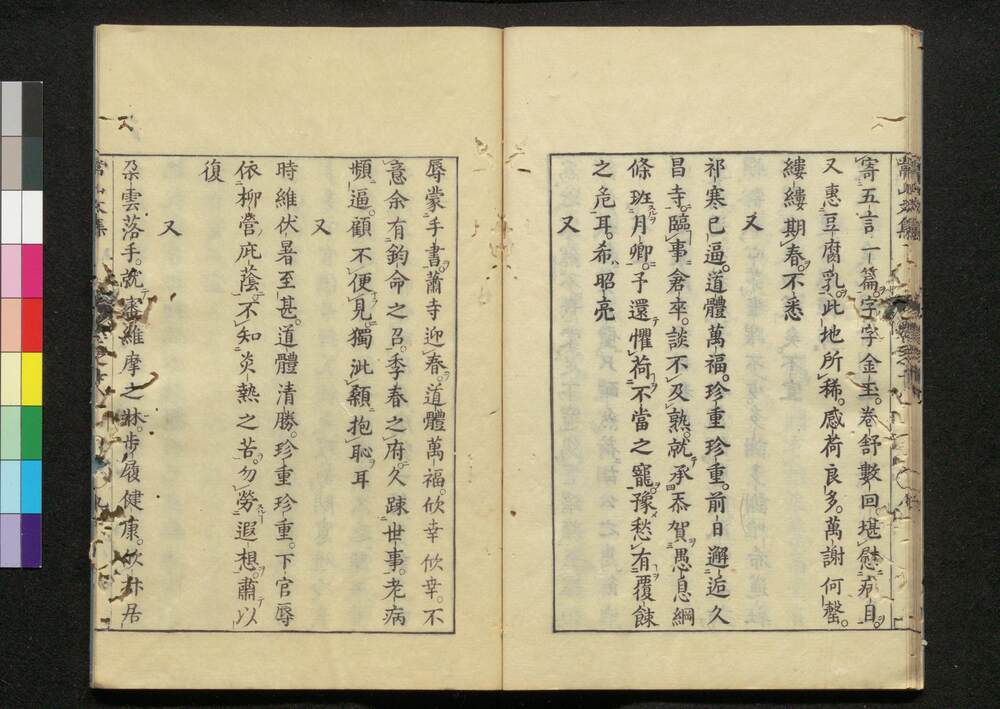 寄五言一篇字字金玉。卷舒數回堪慰病目。
又惠豆腐乳。此地所稀。感荷良多。萬謝何罄。
縷縷期春。不悉
又
祁寒已逼。道體萬福。珍重珍重。前日邂逅久
昌寺。臨事倉卒。談不及熟。就承忝賀愚息綱
條班月卿。予還懼荷不當之寵。豫愁有覆餗
之危耳。希昭亮
又
辱蒙手書。蕭寺迎春。道體萬福。欣幸欣幸。不
意余有鈞命之召。季春之府。久踈世事。老病
頻逼。顧不便見獨泚顙抱恥耳
又
時維伏暑至甚。道體清勝。珍重珍重。下官辱
依柳營庇蔭。不知炎熱之苦。勿勞遐想。肅以
復
又
朶雲落手。就審維摩之牀。步履健康。欣
常山文集